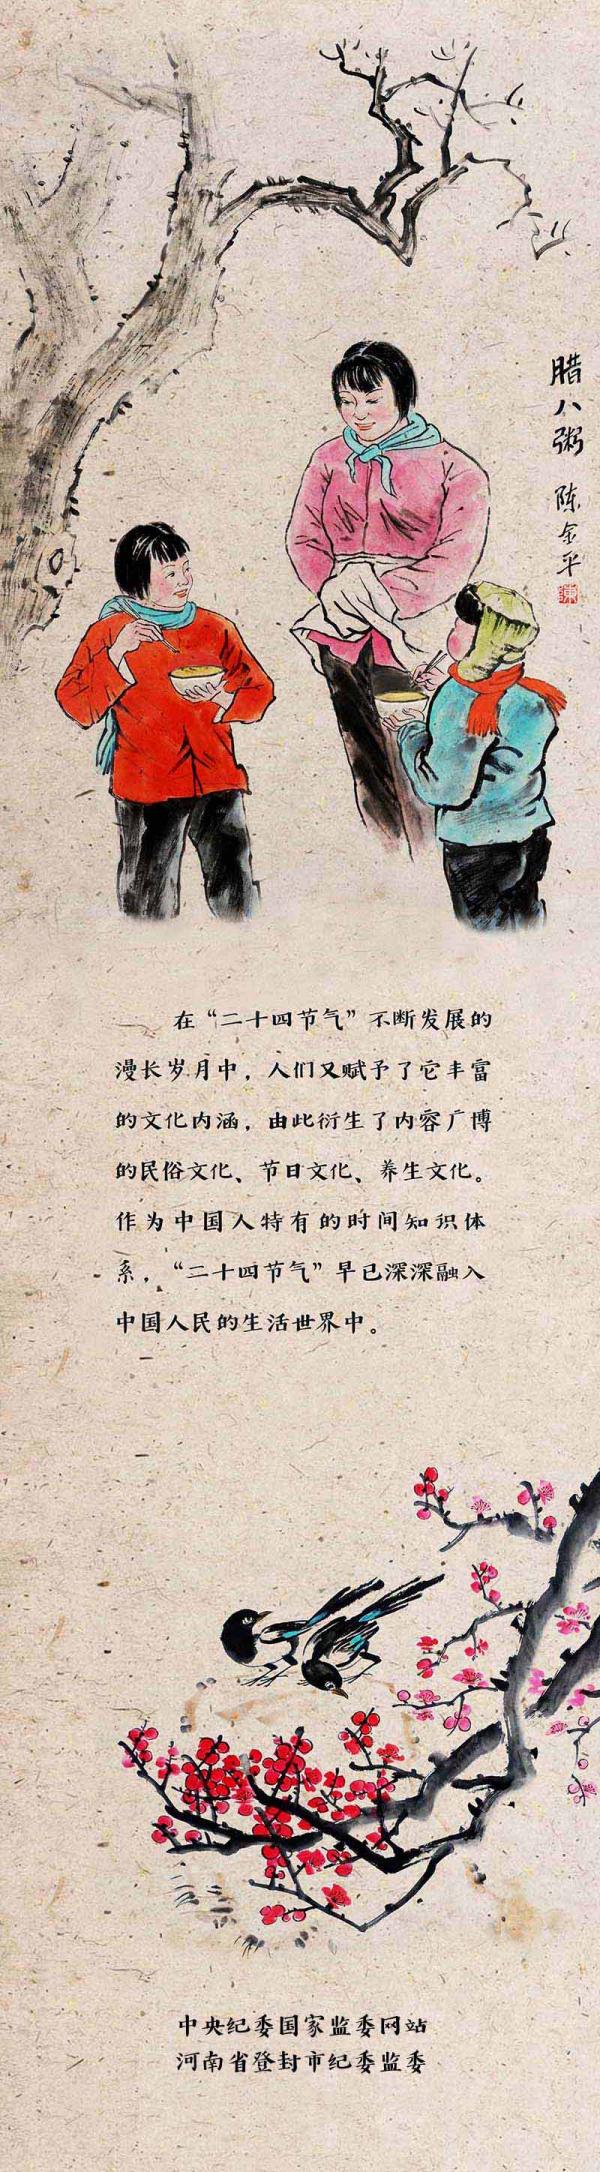 腊八粥 陈金平
陳
在“二十四节气”不断发展的
漫长岁月中，人们又赋予了它丰富
的文化内涵，由此衍生了内容广博
的民俗文化、节日文化、养生文化。
作为中国人特有的时间知识体
系，“二十四节气”早已深深融入
中国人民的生活世界中。
中央纪委国家监委网站
河南省登封市纪委监委